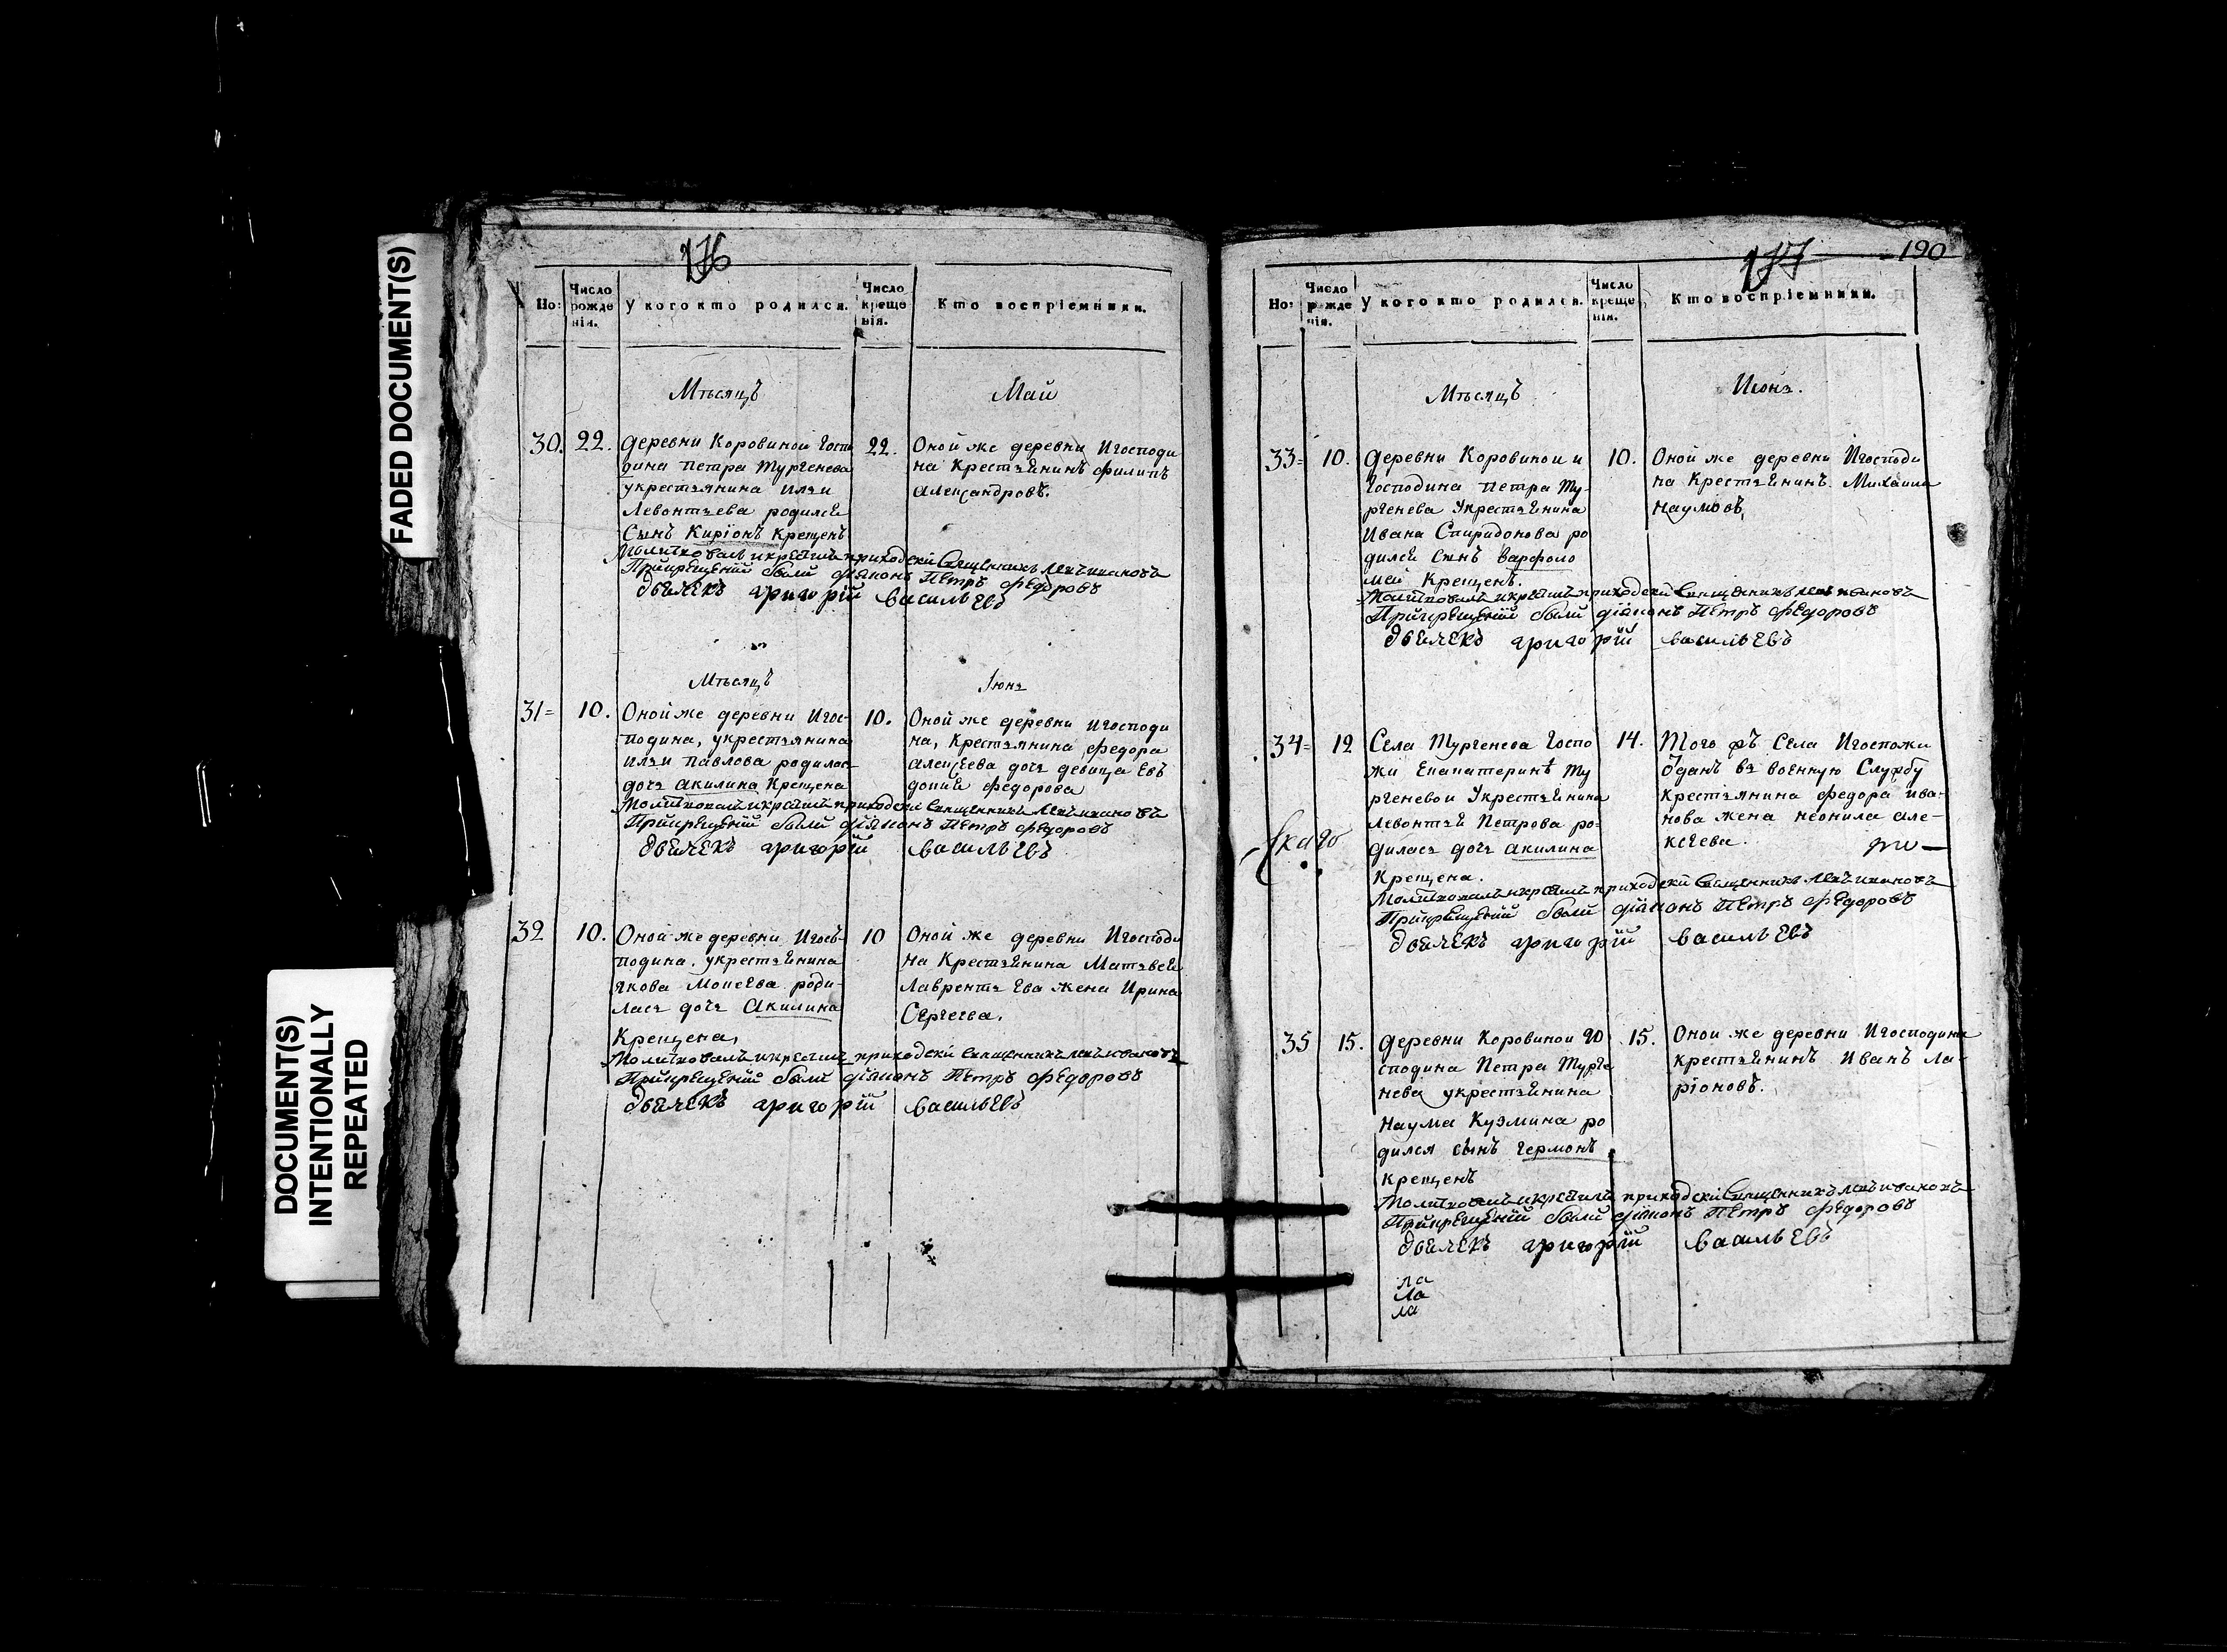 FADED DOCUMENT(S)
DOCUMENT(S)
INTENTIONALLY
REPEATED
176
Но:
Число
рожде
нія.
У кого кто родился.
Число
креще
нія.
Кто воспріемники.
Мѣсяцъ
Май
30.
22.
деревни Коровиной Госпо
дина Петра Тургенева
укрестьянина Ильи
Левонтьева родился
Сынъ Киріонъ крещенъ
22.
Оной же деревни Игосподи
на крестьянинъ Филипъ
Александровъ.
Молитвовалъ икрестилъ приходскій Священникъ Левъ Ивановъ
Прикрещеніи были діяконъ Петръ Федоровъ
дьячекъ григорій васильевъ
Мѣсяцъ
Іюнь
31=
10.
Оной же деревни Игос-
подина, укрестьянина
Ильи Павлова родилас
дочь Акилина Крещена
10.
Оной же деревни Игосподи
на, Крестьянина Федора
Алексеева дочь девица Ев
докия Федорова
Молитвовалъ икрестилъ приходскій Священникъ Левъ Ивановъ
Прикрещеніи были діяконъ Петръ Федоровъ
дьячекъ григорій васильевъ
32
10.
Оной же деревни Игось-
подина, укрестьянина
Якова Моисева роди-
лась дочь Акилина
Крещена,
10
Оной же деревни Игосподи
на Крестьянина Матвей
Лаврентьева жена Ирина
Сергеева.
Молитвовалъ икрестилъ приходскій Священникъ Левъ Ивановъ
Прикрещеніи были діяконъ Петръ Федоровъ
дьячекъ григорій васильевъ
177
190
Но:
Число
рожде
нія.
У кого кто родился.
Число
креще
нія.
Кто воспріемники.
Мѣсяцъ
Июнь.
33=
10.
деревни Коровиной и
Господина Петра Ту-
ргенева Укрестьянина
Ивана Спиридонова ро
дился сынъ Варфоло
мей Крещенъ.
10.
Оной же деревни Игосподи
на Крестьянинъ Михаила
Наумовъ,
Молитвовалъ икрестилъ приходскій Священникъ Левъ Ивановъ
Прикрещеніи были діяконъ Петръ Федоровъ
дьячекъ григорій васильевъ
34=
12
Села Тургенева Госпо
жи Екатеринѣ Ту
ргеневой Укрестьянина
Левонтья Петрова ро-
дилась дочь Акилина
Крещена.
14.
Того жъ Села Игоспожи
Оданъ въ военную Службу
Крестьянина Федора Ива-
нова жена Неонила Але-
ксеева.
Молитвовалъ икрестилъ приходскій Священникъ Левъ Ивановъ
Прикрещеніи были діяконъ Петръ Федоровъ
дьячекъ григорій васильевъ
35
15.
деревни Коровиной Го
сподина Петра Турге
нева укрестьянина
Наума Кузмина ро
дился сынъ Гермонъ
крещенъ
15.
Оной же деревни Игосподина
крестьянинъ Иванъ Ла-
ріоновъ.
Молитвовалъ икрестилъ приходскій Священникъ Левъ Ивановъ
Прикрещеніи были діяконъ Петръ Федоровъ
дьячекъ григорій васильевъ
ла
ла
ла